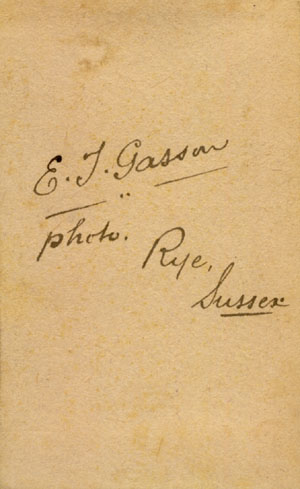 E. J. Gasson
photo.
Rye,
Sussex